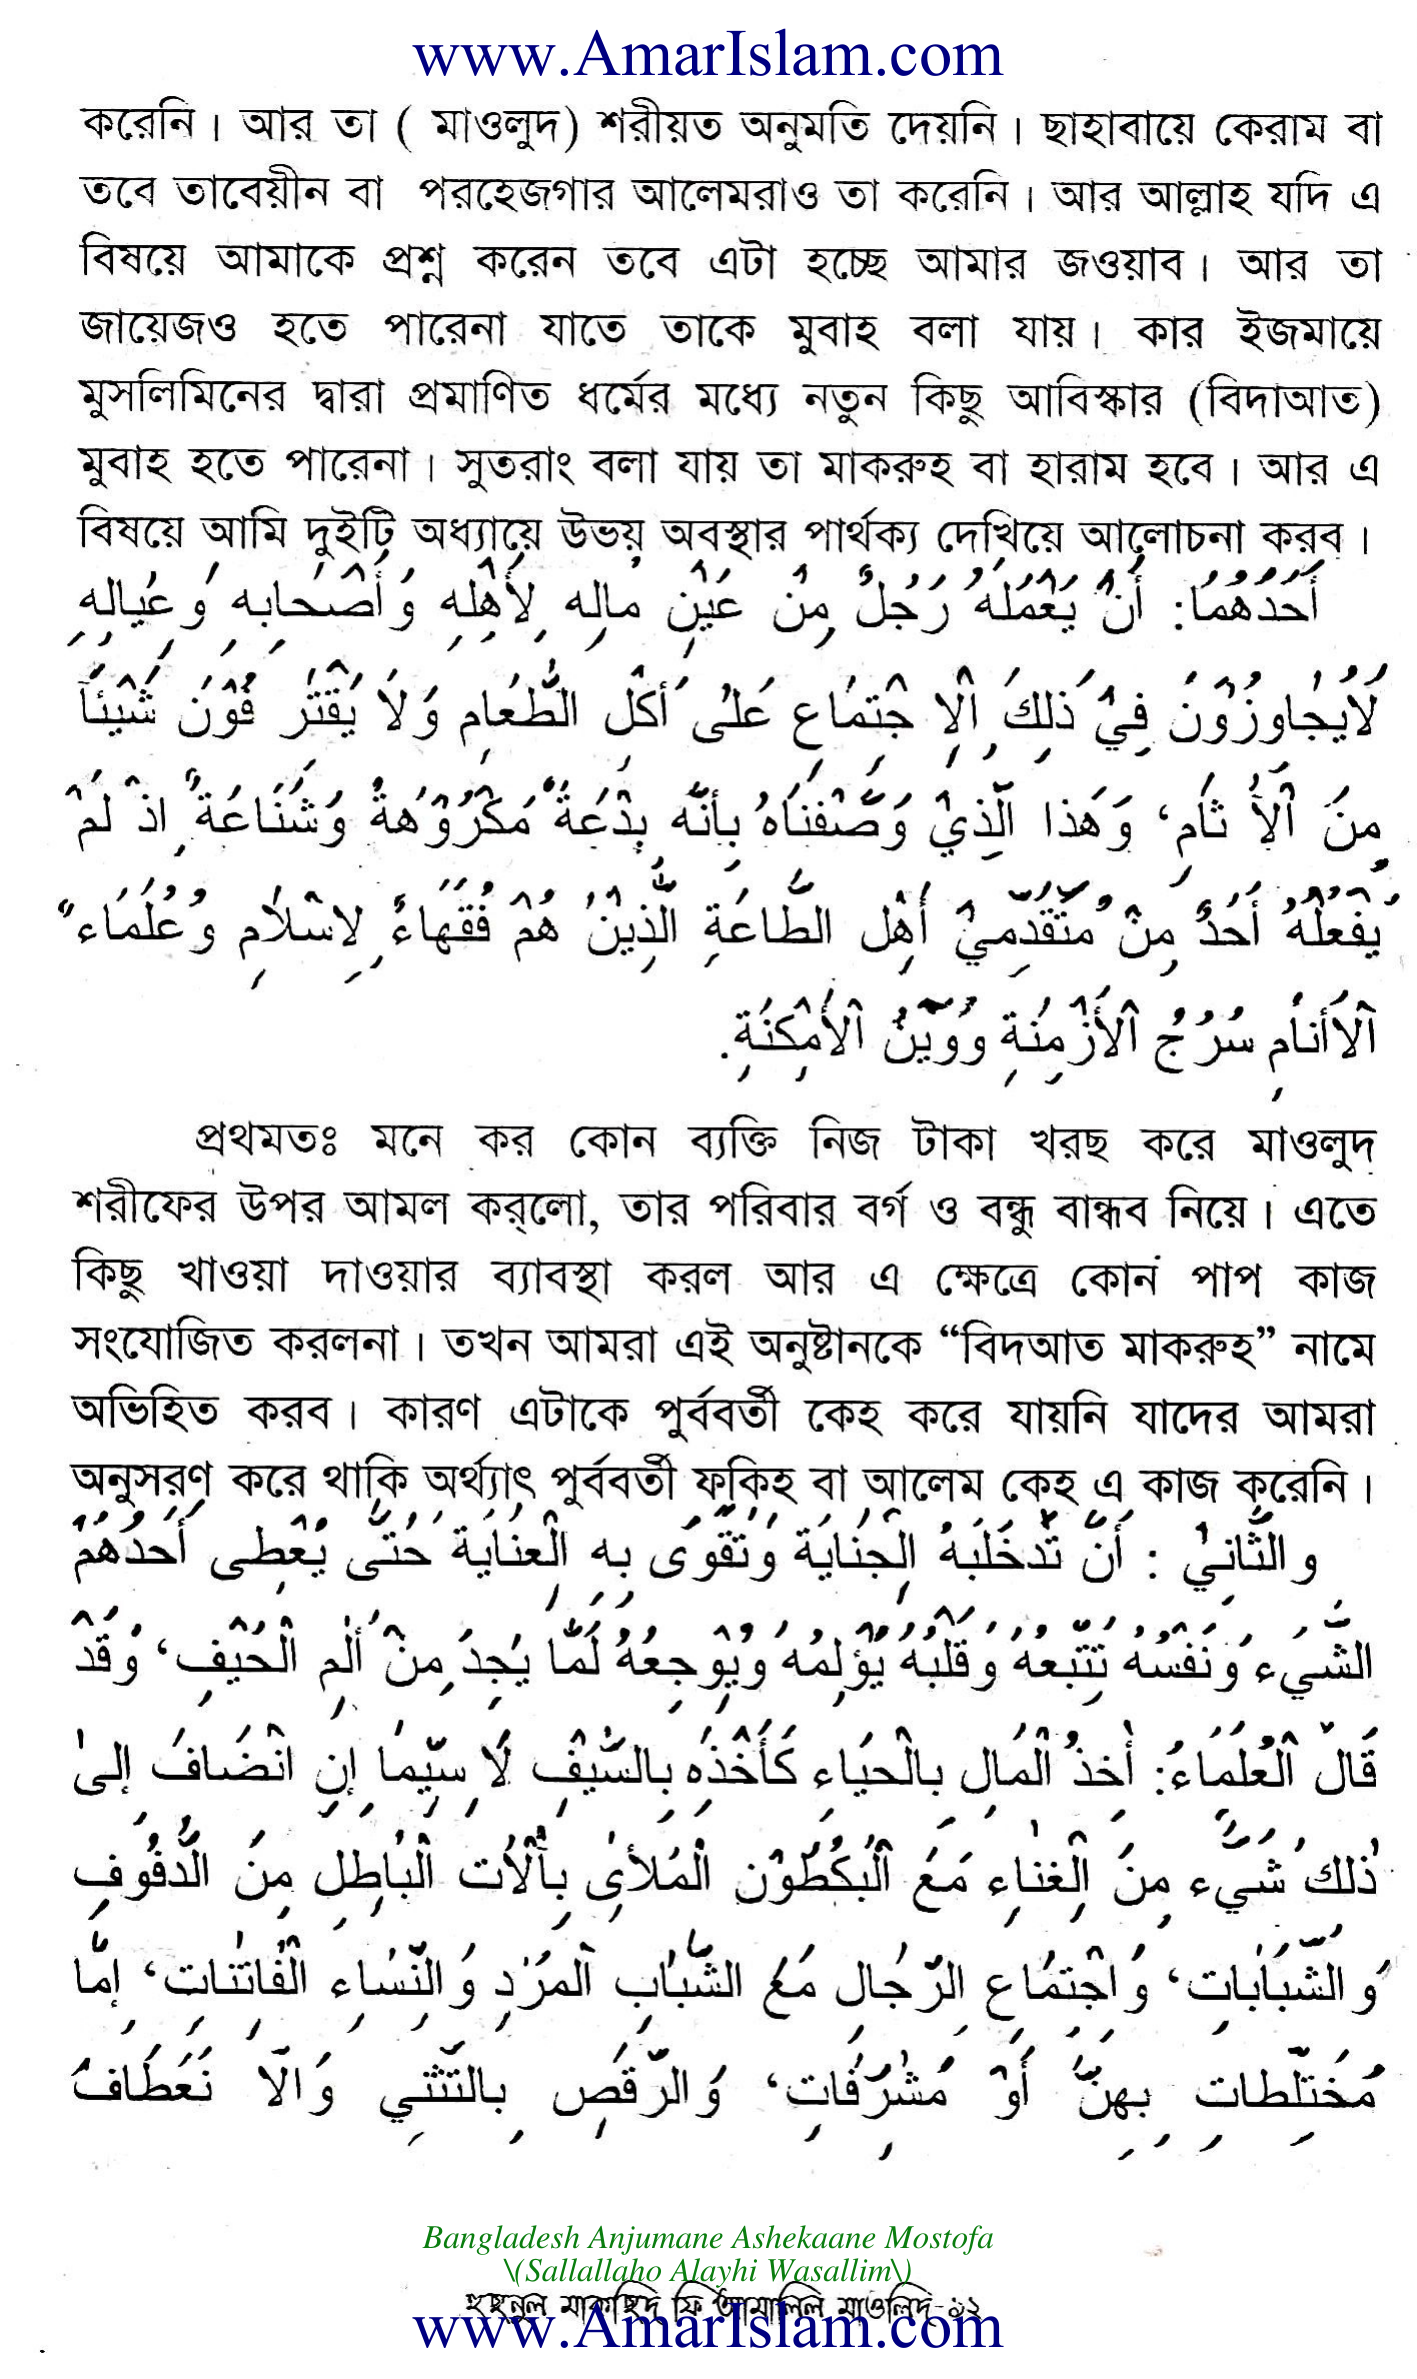 www.AmarIslam.com
করেনি। আর তা ( মাওলুদ) শরীয়ত অনুমতি দেয়নি। ছাহাবায়ে কেরাম বা
তবে তাবেয়ীন বা পরহেজগার আলেমরাও তা করেনি। আর আল্লাহ যদি এ
বিষয়ে আমাকে প্রশ্ন করেন তবে এটা হচ্ছে আমার জওয়াব। আর তা
জায়েজও হতে পারেনা যাতে তাকে মুবাহ বলা যায়। কার ইজমায়ে
মুসলিমিনের দ্বারা প্রমাণিত ধর্মের মধ্যে নতুন কিছু আবিস্কার (বিদাআত)
মুবাহ হতে পারেনা। সুতরাং বলা যায় তা মাকরুহ বা হারাম হবে। আর এ
বিষয়ে আমি দুইটি অধ্যায়ে উভয় অবস্থার পার্থক্য দেখিয়ে আলোচনা করব।
أَحَدُهُمَا: أَنْ يَعْمَلَهُ رَجُلٌ مِنْ عَيْنِ مَالِهِ لِأَهْلِهِ وَأَصْحَابِهِ وَعِيَالِهِ
لَايُجَاوِزُوْنَ فِيْ ذٰلِكَ اْلِاجْتِمَاعِ عَلٰى أَكْلِ الطَّعَامِ وَلَا يَقْتَرِ فُوْنَ شَيْئاً
مِنَ اْلأَ ثَامِ، وَهَذا الَّذِيْ وَصَّفْنَاهُ بِأَنَّه بِدْعَةٌ مَكْرُوْهَةٌ وَشَنَاعَةٌ اِذْ لَمْ
يَفْعَلْهُ أَحَدٌ مِنْ مُتَقَدِّمِيْ أَهْلِ الطَّاعَةِ الَّذِيْنَ هُمْ فُقَهَاءُ لِاسْلَامِ وَعُلَمَاءُ
اْلاَأنَامِ سُرُجُ اْلأَزْمِنَةِ وَوَيْنُ اْلأَمْكِنَةِ.
প্রথমতঃ মনে কর কোন ব্যক্তি নিজ টাকা খরছ করে মাওলুদ
শরীফের উপর আমল কর্‌লো, তার পরিবার বর্গ ও বন্ধু বান্ধব নিয়ে। এতে
কিছু খাওয়া দাওয়ার ব্যাবস্থা করল আর এ ক্ষেত্রে কোন পাপ কাজ
সংযোজিত করলনা। তখন আমরা এই অনুষ্টানকে “বিদআত মাকরুহ” নামে
অভিহিত করব। কারণ এটাকে পুর্ববর্তী কেহ করে যায়নি যাদের আমরা
অনুসরণ করে থাকি অর্থ্যাৎ পুর্ববর্তী ফকিহ বা আলেম কেহ এ কাজ করেনি।
والثَّانِيْ : أَنَّ تَدْخَلَبهُ الْجِنَايَةُ وَتَقْوَى بِهِ الْعِنَايَةُ حَتَّى يُعْطِى أَحَدُهُمْ
الشَّيْءَ وَنَفْسُهُ تَتَّبِعهُ وَقَلْبُهُ يُؤْلِمُهُ وَيُوْجِعُهُ لَمَّا يَجِدَ مِنْ أَلَمِ الْحَيْفِ، وَقَدْ
قَالَ الْعُلَمَاءُ: أَخذُ الْمَالِ بِالْحَيَاءِ كَأَخْذِهِ بِالسَّيْفِ لَا سِيَّمَا إِنِ انْضَافَ إِلىٰ
ذٰلِكَ شَيْءٌ مِنَ الْغِنَاءِ مَعَ الْبُكُطُوْنِ الْمَلأىٰ بِأْلَاتِ الْبَاطِلِ مِنَ الدُّفُوفِ
وَالشَّبَابَاتِ، وَاجْتِمَاعِ الرِّجَالِ مَعَ الشَّبَابِ الْمَرْدِ وَالنِّسَاءِ الْفَاتَنَاتِ، إِمَّا
مُخْتَلِطَاتٍ بِهِنَّ أَوْ مُشْرِفَاتٍ، وَالرَّقْصِ بِالتَّثَنِي وَالَّا نَعَطَافُ
Bangladesh Anjumane Ashekaane Mostofa
\(Sallallaho Alayhi Wasallim\)
হুছনুল মাকছিদ ফি আমালিল মাওলিদ-১২
www.AmarIslam.com